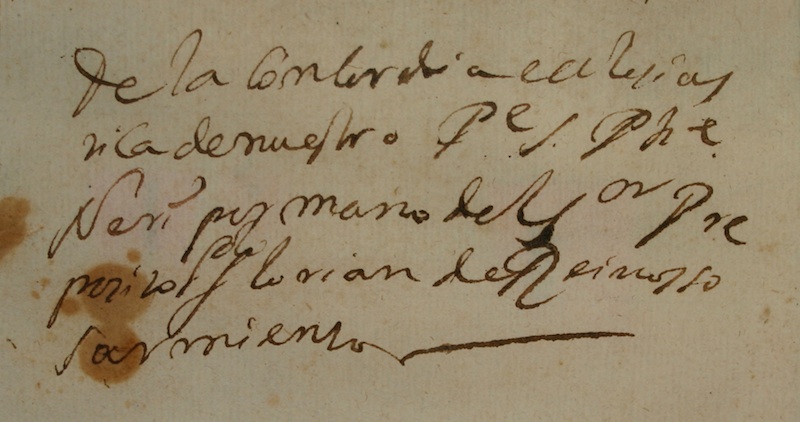 De la Concordia eclesias
tica de nuestro Pe S. Phe.
Neri por mano del Sor Pre
posito Florian de Reinosso
sarmiento